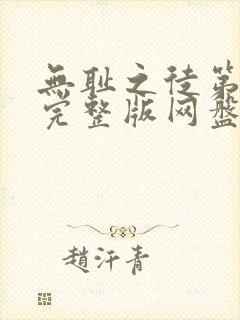 無耻之徒第
完整版网盘
趙汗青